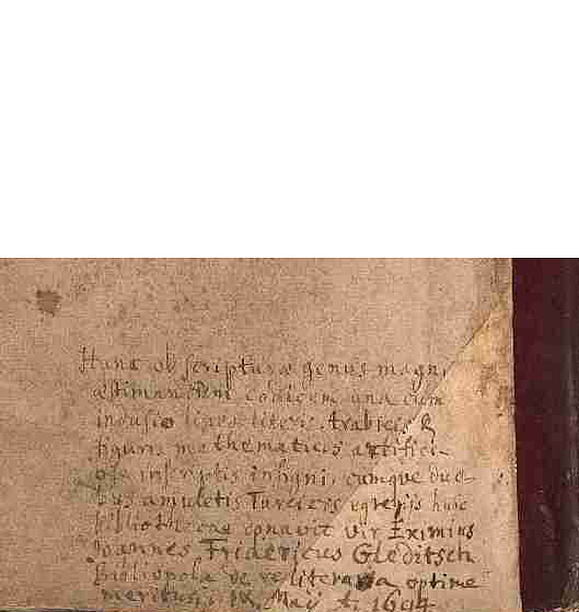 Hunc ob scripturæ genus magni
æstimandum codicem una cum
indusio lineo literis Arabicis &
figuris mathematicis artifici-
ose inscriptis insigni, eumque duo-
bus amuletis Turcicis egregiis huic
Bibliothecae donavit vir Eximius
Joannes Fridericus Gleditsch
Bibliopola de re literaria optime
meritus, IX. Maij A. 1694